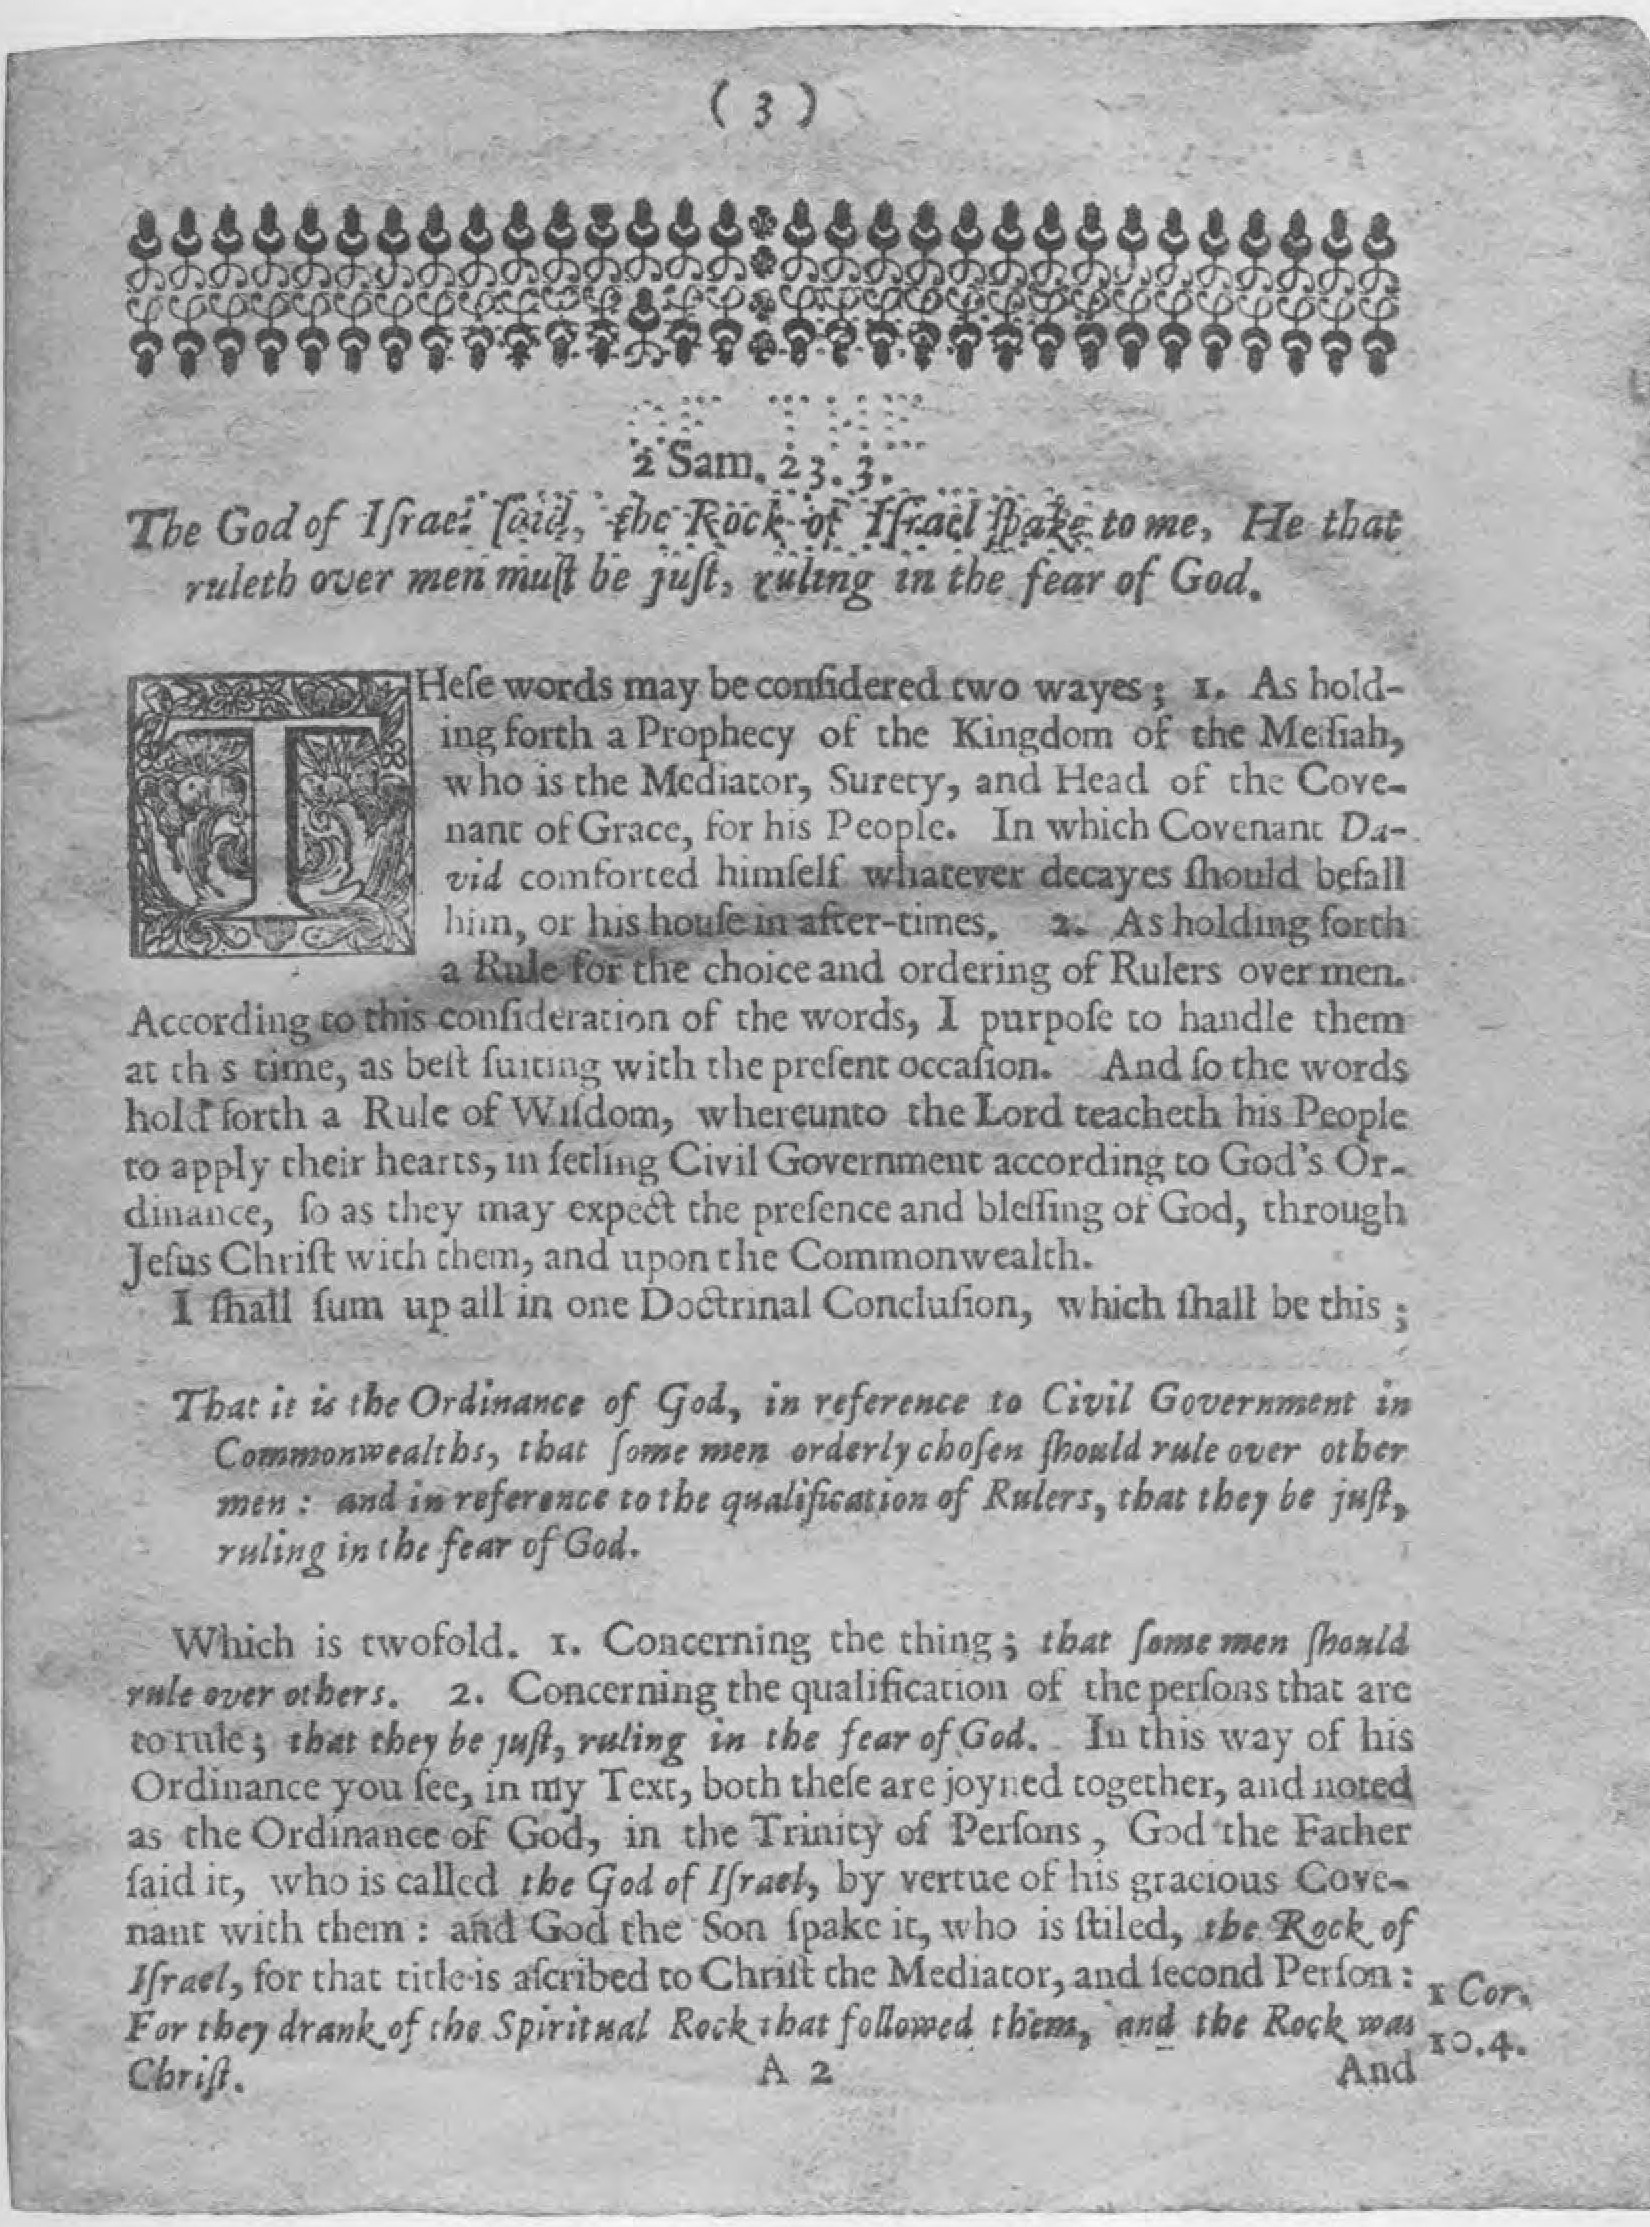 ( 3 )
2 Sam. 23. 3.
The God of Iſrael ſaid, the Rock of Iſrael ſpake to me, He that
ruleth over men muſt be juſt, ruling in the fear of God.
THeſe words may be conſidered two wayes; 1. As hold-
ing forth a Prophecy of the Kingdom of the Meſſiah,
who is the Mediator, Surety, and Head of the Cove-
nant of Grace, for his People. In which Covenant Da-
vid comforted himſelf whatever decayes ſhould befall
him, or his houſe in after-times. 2. As holding forth
a Rule for the choice and ordering of Rulers over men.
According to this conſideration of the words, I purpoſe to handle them
at th s time, as beſt ſuiting with the preſent occaſion. And ſo the words
hold forth a Rule of Wiſdom, whereunto the Lord teacheth his People
to apply their hearts, in ſetling Civil Government according to God's Or-
dinance, ſo as they may expect the preſence and bleſſing of God, through
Jeſus Chriſt with them, and upon the Commonwealth.
I ſhall ſum up all in one Doctrinal Concluſion, which ſhall be this;
That it is the Ordinance of God, in reference to Civil Government in
Commonwealths, that ſome men orderly choſen ſhould rule over other
men: and in reference to the qualification of Rulers, that they be juſt,
ruling in the fear of God.
Which is twofold. 1. Concerning the thing; that ſome men ſhould
rule over others. 2. Concerning the qualification of the perſons that are
to rule; that they be juſt, ruling in the fear of God. In this way of his
Ordinance you ſee, in my Text, both theſe are joyned together, and noted
as the Ordinance of God, in the Trinity of Perſons, God the Father
ſaid it, who is called the God of Iſrael, by vertue of his gracious Cove-
nant with them: and God the Son ſpake it, who is ſtiled, the Rock of
Iſrael, for that title is aſcribed to Chriſt the Mediator, and ſecond Perſon:
For they drank of the Spiritual Rock that followed them, and the Rock was
Chriſt.
1 Cor.
10.4.
A 2
And